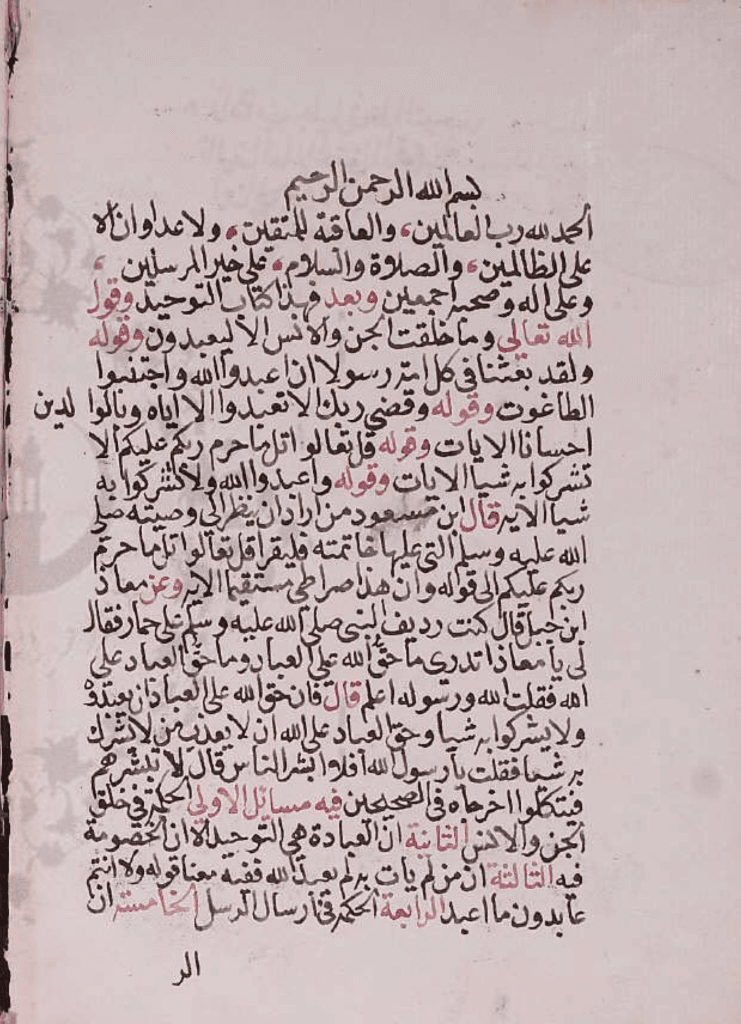 بسم الله الرحمن الرحيم
الحمد لله رب العالمين، والعاقبة للمتقين، ولا عداوان الا
على الظالمين، والصلاة والسلام، على خير المرسلين،
وعلى اله وصحبه اجمعين وبعد فهذا كتاب التوحيد وقول
الله تعالى وما خلقت الجن والانس الا ليعبدون وقوله
ولقد بعثنا في كل امة رسولا ان اعبدوا الله واجتنبوا
الطاغوت وقوله وقضى ربك الا تعبدوا الا اياه وبالوالدين
احسانا الايات وقوله قل تعالوا اتل ما حرم ربكم عليكم الا
تشركوا به شيا الايات وقوله واعبدوا الله ولا تشركوا به
شيا الايه قال ابن مسعود من اراد ان ينظر الى وصيته صلى
الله عليه وسلم التي عليها خاتمته فليقرا قل تعالوا اتل ما حرم
ربكم عليكم الى قوله وان هذا صراطي مستقيما الايه وعن معاذ
ابن جبل قال كنت رديف النبي صلى الله عليه وسلم على حمار فقال
لي يا معاذ اتدري ما حق الله على العباد وما حق العباد على
الله فقلت الله ورسوله اعلم قال فان حق الله على العباد ان يعبدوه
ولا يشركوا به شيا وحق العباد على الله ان لا يعذب من لا يشرك
به شيا فقلت يا رسول الله أفلا ابشر الناس قال لا تبشرهم
فيتكلوا اخرجاه في الصحيحين فيه مسائل الاولى الحكمة في خلق
الجن والانس الثانية ان العبادة هي التوحيد لان الخصومة
فيه الثالثة ان من لم يات به لم يعبد الله ففيه معنا قوله ولا انتم
عابدون ما اعبد الرابعة الحكمة في ارسال الرسل الخامسة ان
الر